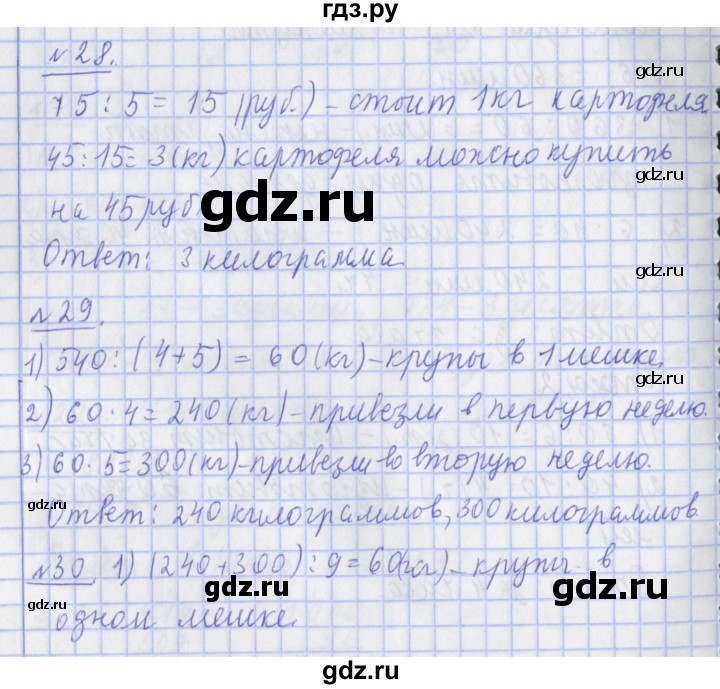 гдз.ру
№28.
75:5=15(руб.)-стоит 1кг картофеля
45:15=3(кг)картофеля можно купить
gdz.ru
на 45 руб.
gdz.ru
Ответ: 3 килограмма.
gdz.ru
№29.
1) 540:(4+5)=60(кг)-крупы в 1 мешке,
gdz.ru
2) 60·4=240(кг)-привезли в первую неделю.
3) 60·5=300(кг)-привезли во вторую неделю.
gdz.ru
Ответ: 240 килограммов, 300 килограммов
gdz.ru
№30 1) (240+300):9=60(кг)-крупы в
gdz.ru
gdz.ru
gdz.ru
одном мешке.
gdz.ru